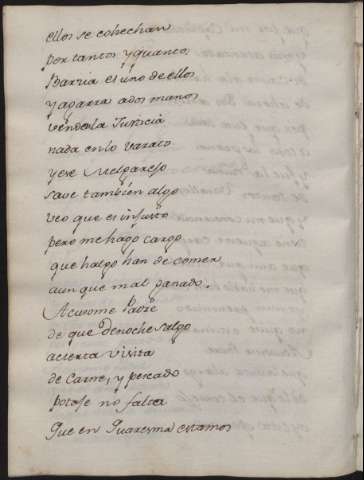 ellos se cohechan
por tantos y quantos
Barria es uno de ellos
y agarra a dos manos
vendenla Justicia
nada en lo varato
y ese
save tambien algo
veo que es injusto
pero me hago cargo
que halgo han de comer
aun que mal ganado.
Acusome Padre
de que de noche salgo
acierta visita
de Carne, y pescado
potaje no falta
que en Quaresma estamos